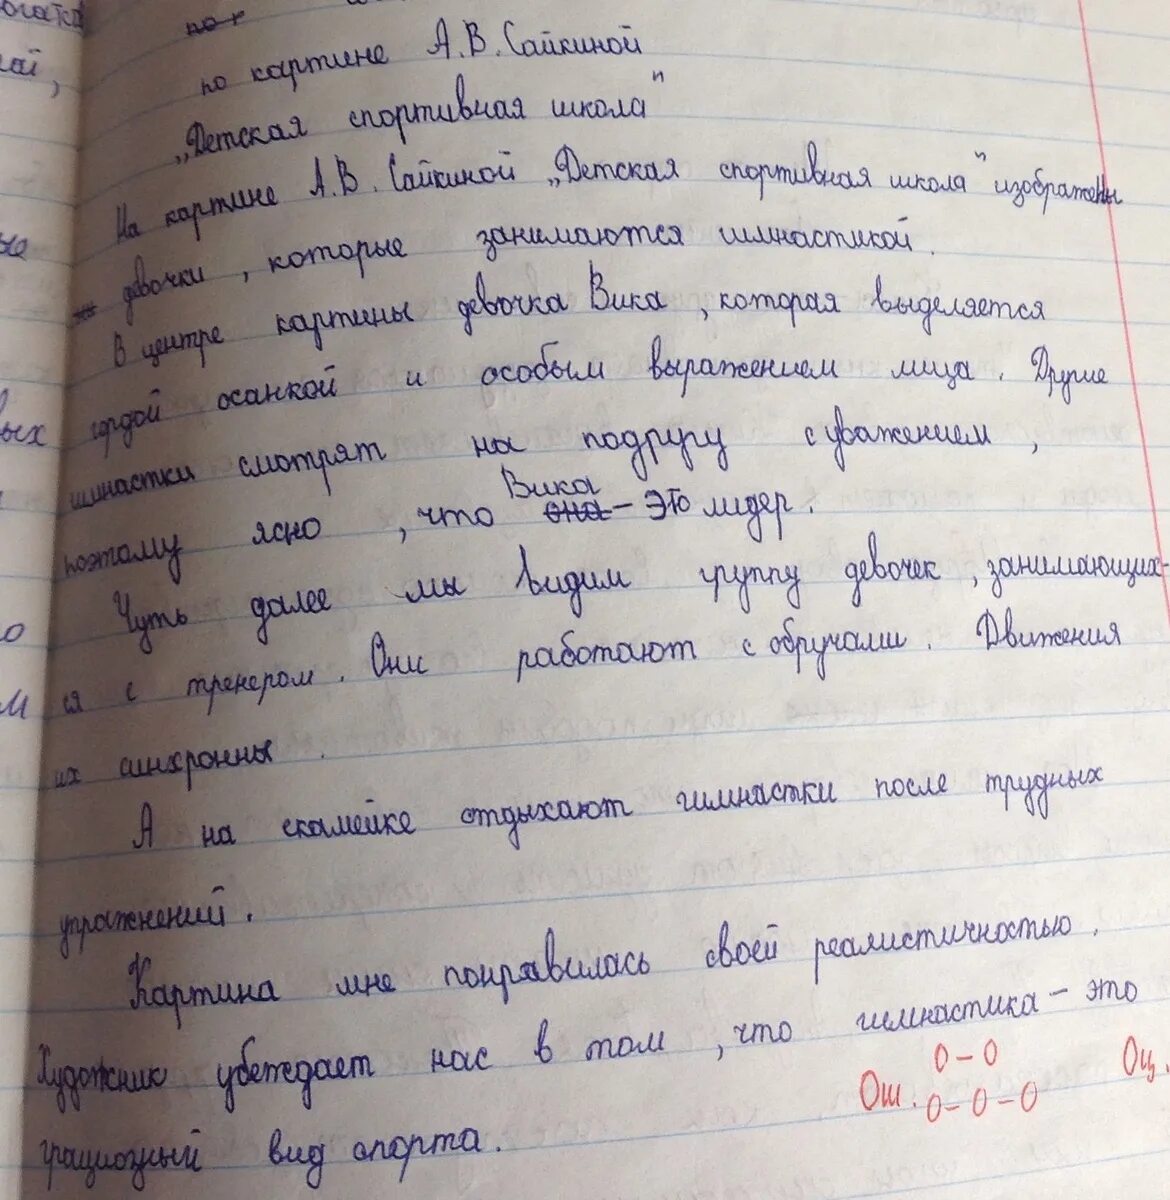 по картине А.В. Сайкиной
„Детская спортивная школа"
На картине А.В. Сайкиной „Детская спортивная школа" изображены
девочки, которые занимаются гимнастикой.
В центре картины девочка Вика, которая выделяется
гордой осанкой и особым выражением лица. Другие
гимнастки смотрят на подругу с уважением,
Вика
поэтому ясно, что она – это лидер.
Чуть далее мы видим группу девочек, занимающих-
ся с тренером. Они работают с обручами. Движения
их синхронны.
А на скамейке отдыхают гимнастки после трудных
упражнений.
Картина мне понравилась своей реалистичностью.
Художник убеждает нас в том, что гимнастика – это
грациозный вид спорта.
0–0
Ош. 0–0–0
Оц.